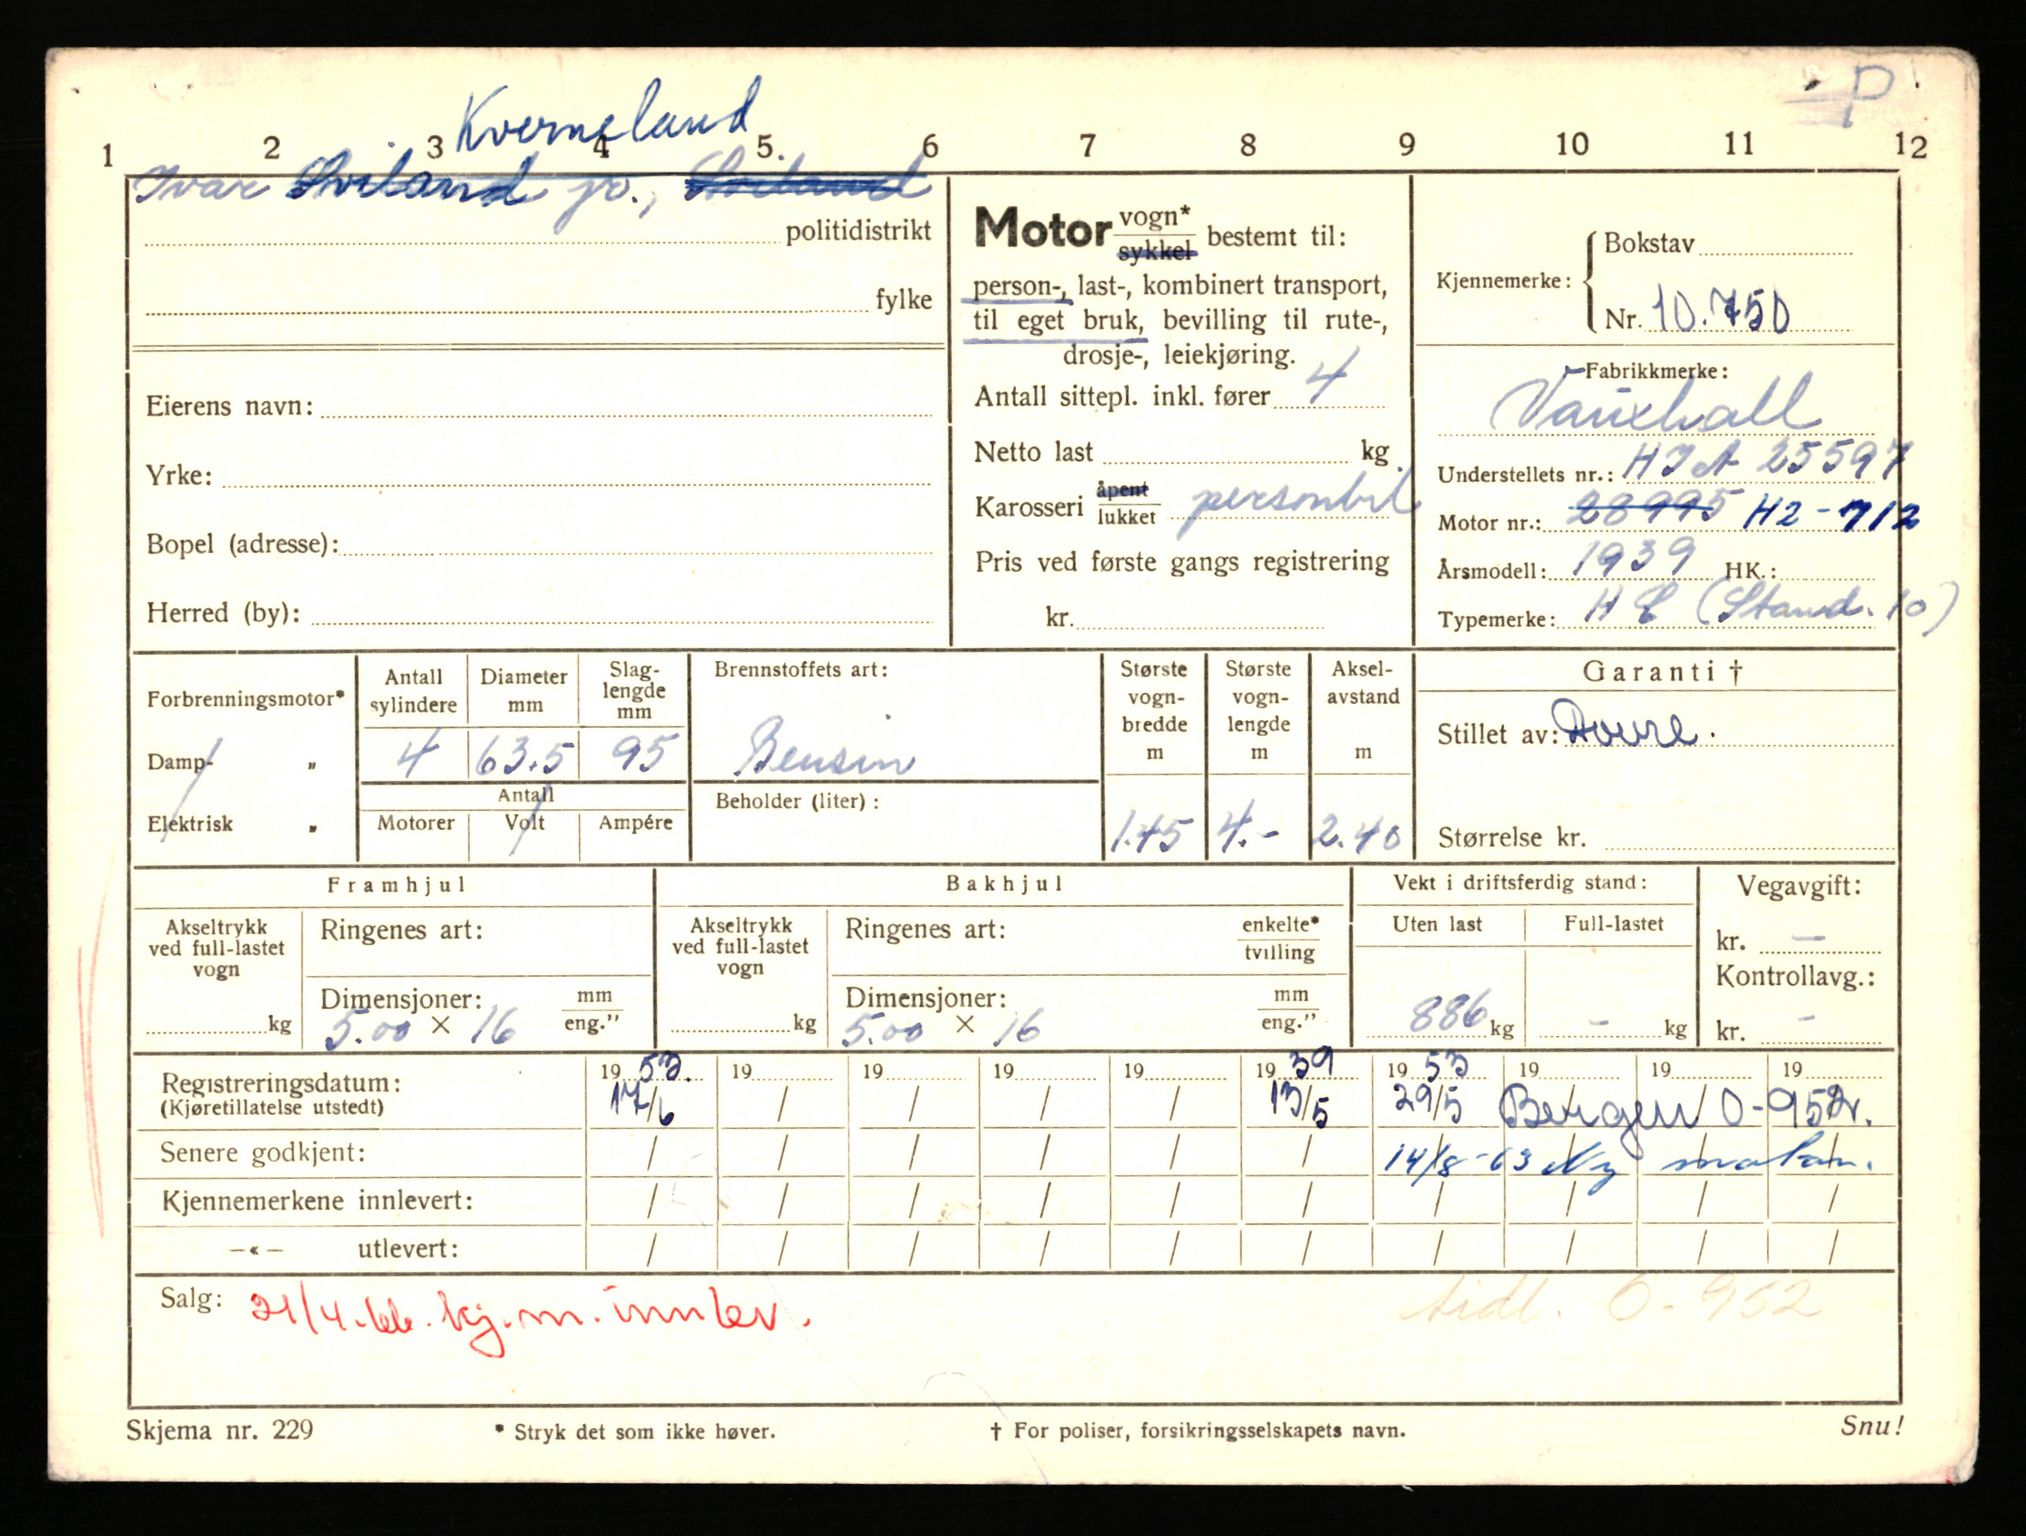 P
Kverneland
1 2 3 4 5 6 7 8 9 10 11 12
Ivar Sviland jr., Sviland
politidistrikt
fylke
Eierens navn:
Yrke:
Bopel (adresse):
Herred (by):
Motor vogn* sykkel bestemt til:
person-, last-, kombinert transport,
til eget bruk, bevilling til rute-,
drosje-, leiekjøring.
Antall sittepl. inkl. fører 4
Netto last kg
Karosseri åpent lukket personbil
Pris ved første gangs registrering
kr.
Kjennemerke: Bokstav
Nr. 10.750
Fabrikkmerke:
Vauxhall
Understellets nr.: HIA 25597
Motor nr.: 28995 H2-712
Årsmodell: 1939 HK.:
Typemerke: H E (Stand. 10)
Forbrenningsmotor*
Damp- "
Elektrisk "
Antall sylindere 4
Diameter mm 63.5
Slag-lengde mm 95
Antall
Motorer Volt Ampére
Brennstoffets art:
Bensin
Beholder (liter):
Største vogn-bredde m 1.45
Største vogn-lengde m 4.-
Aksel-avstand m 2.40
Garanti †
Stillet av: Dovre.
Størrelse kr.
Framhjul
Akseltrykk ved full-lastet vogn
kg
Ringenes art:
Dimensjoner: mm eng."
5.00 × 16
Bakhjul
Akseltrykk ved full-lastet vogn
kg
Ringenes art: enkelte* tvilling
Dimensjoner: mm eng."
5.00 × 16
Vekt i driftsferdig stand:
Uten last Full-lastet
886 kg - kg
Vegavgift:
kr. -
Kontrollavg.:
kr. -
Registreringsdatum: 19 53. 19 19 19 19 19 39 19 53 19 19 19
(Kjøretillatelse utstedt) 17/6 / / / / 13/5 29/5 Bergen O-952.
Senere godkjent: / / / / / / 14/8-63 Ny motor.
Kjennemerkene innlevert: / / / / / / / / / /
—«— utlevert: / / / / / / / / / /
Salg: 21/4.66. kj.m. innlev.
tidl. O-952
Skjema nr. 229
* Stryk det som ikke høver.
† For poliser, forsikringsselskapets navn.
Snu!